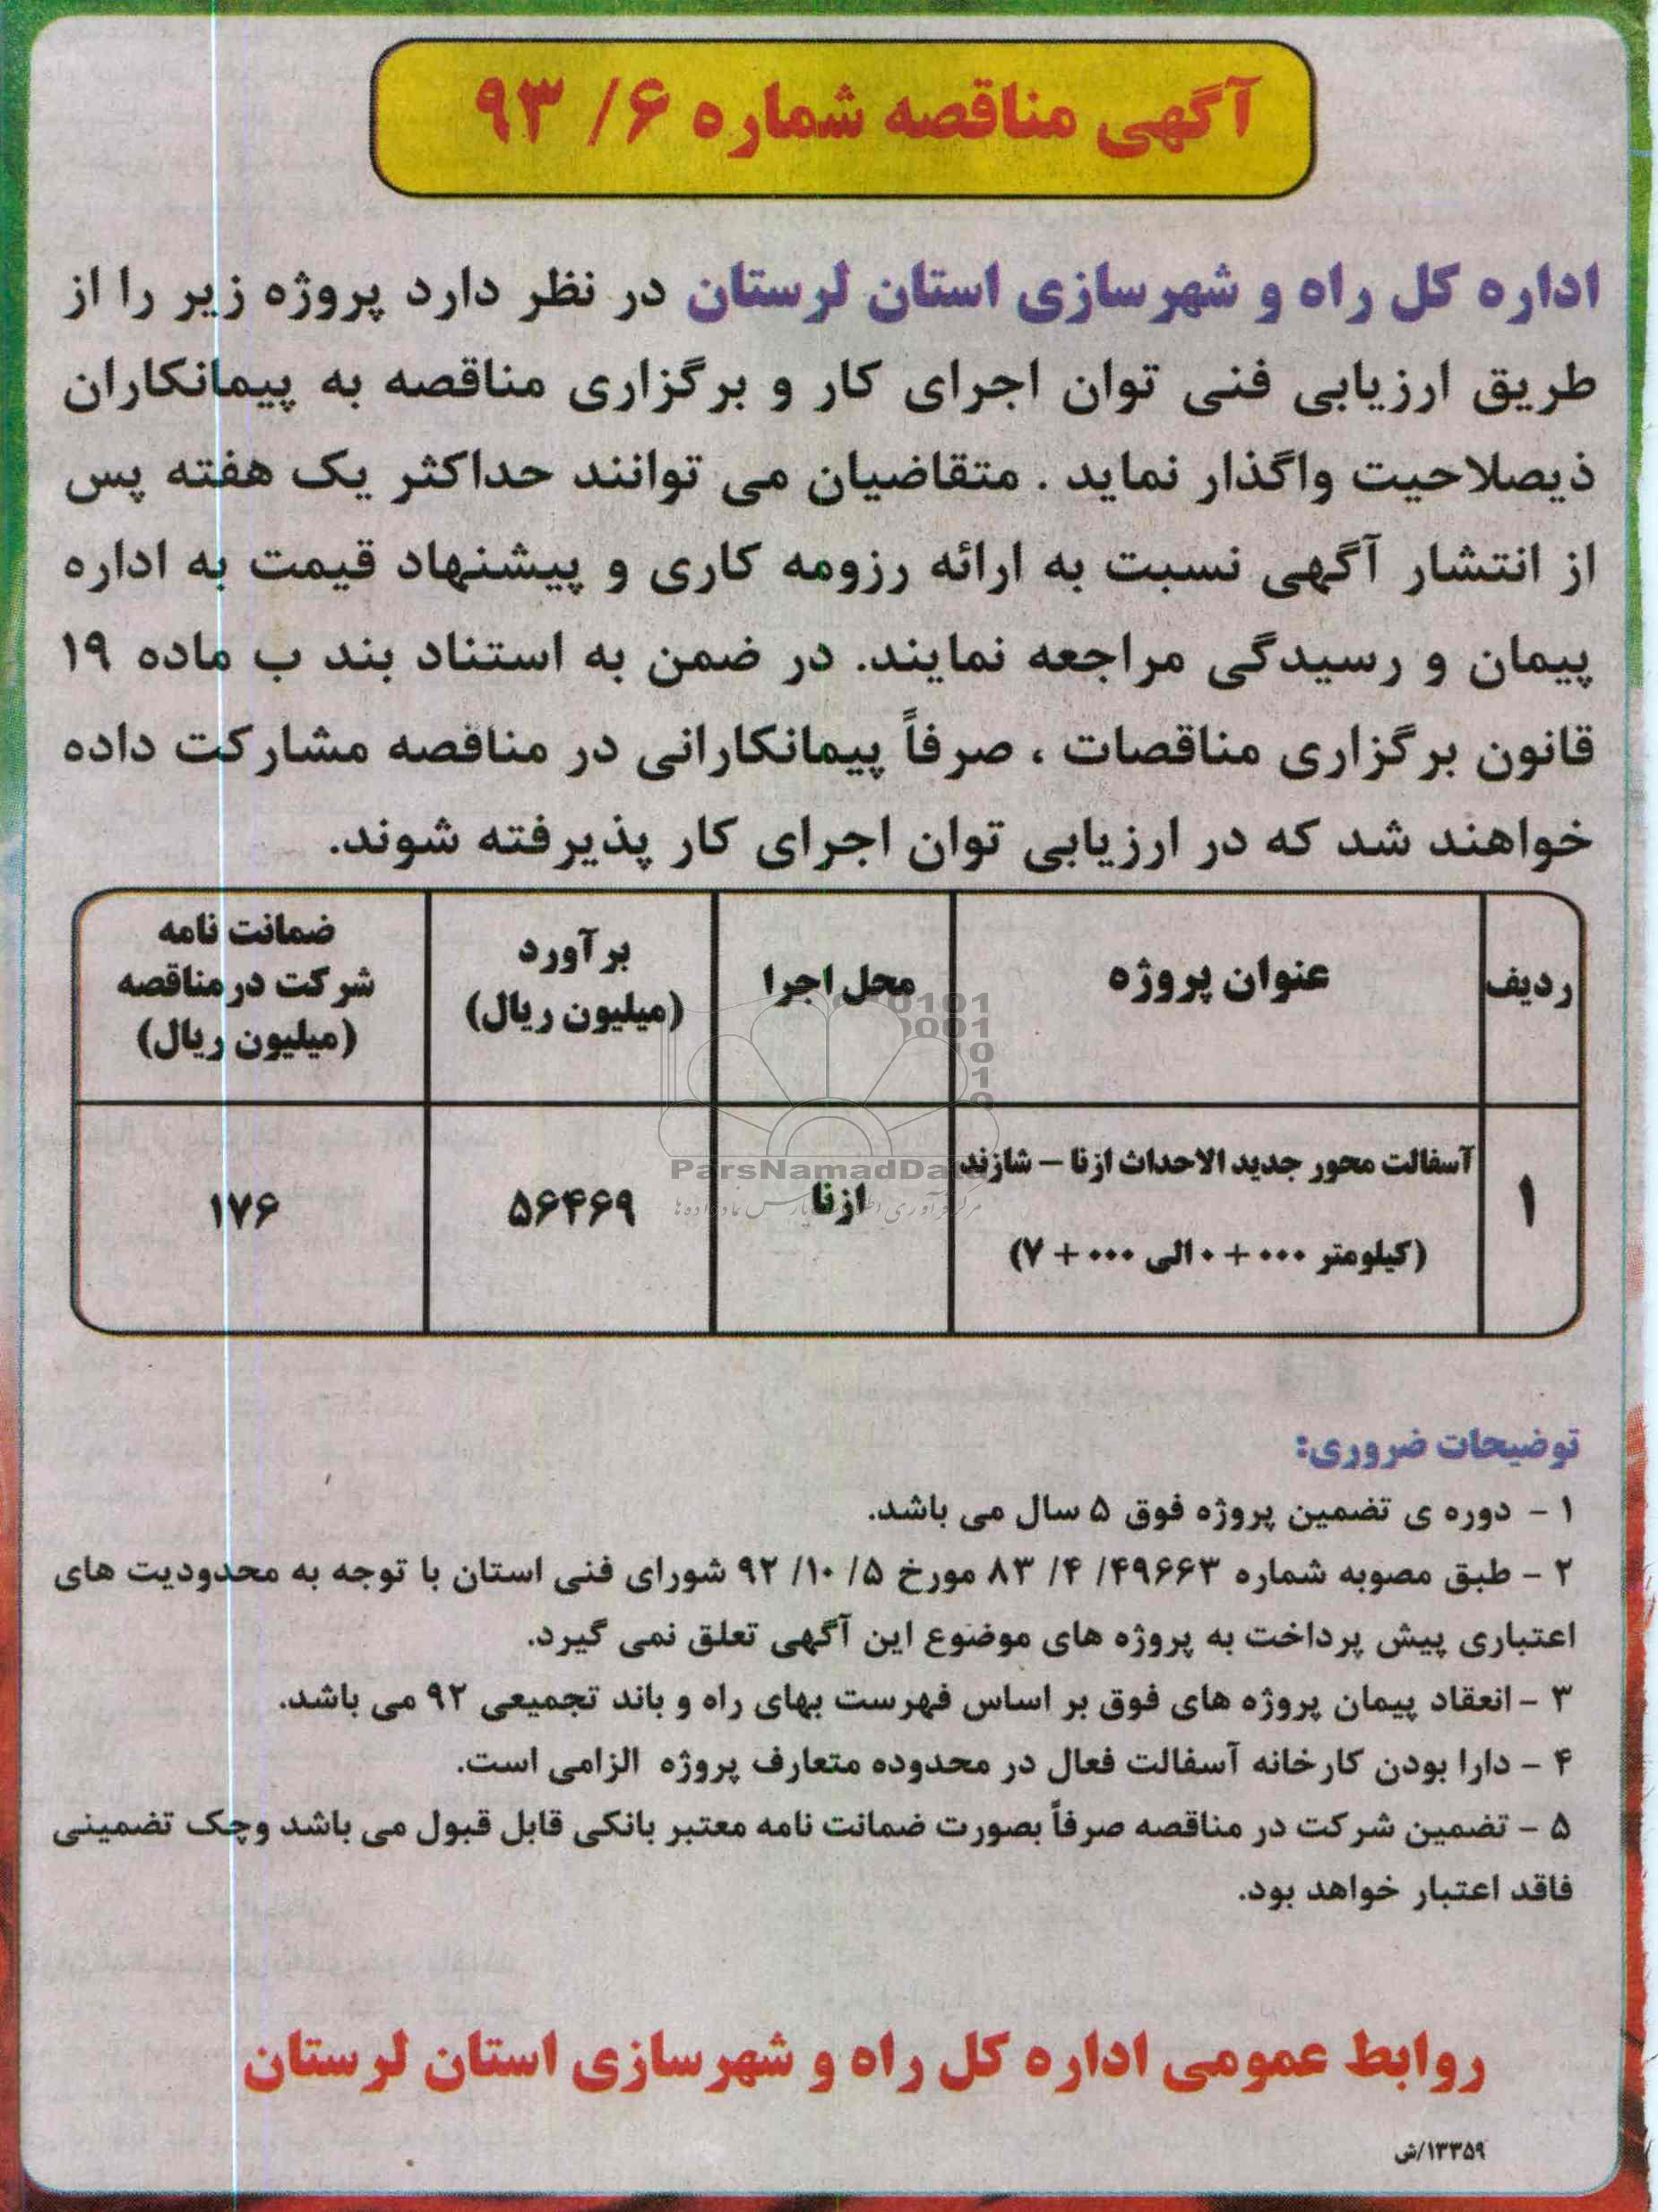 آگهی مناقصه شماره ۶/ ۹۳
اداره کل راه و شهرسازی استان لرستان در نظر دارد پروژه زیر را از
طریق ارزیابی فنی توان اجرای کار و برگزاری مناقصه به پیمانکاران
ذیصلاحیت واگذار نماید . متقاضیان می توانند حداکثر یک هفته پس
از انتشار آگهی نسبت به ارائه رزومه کاری و پیشنهاد قیمت به اداره
پیمان و رسیدگی مراجعه نمایند. در ضمن به استناد بند ب ماده ۱۹
قانون برگزاری مناقصات ، صرفاً پیمانکارانی در مناقصه مشارکت داده
خواهند شد که در ارزیابی توان اجرای کار پذیرفته شوند.
ردیف
عنوان پروژه
محل اجرا
برآورد
(میلیون ریال)
ضمانت نامه
شرکت در مناقصه
(میلیون ریال)
۱
آسفالت محور جدید الاحداث ازنا – شازند
(کیلومتر ۰۰۰ + ۰ الی ۰۰۰ + ۷)
ازنا
۵۶۴۶۹
۱۷۶
ParsNamadData
توضیحات ضروری:
۱ - دوره ی تضمین پروژه فوق ۵ سال می باشد.
۲ - طبق مصوبه شماره ۴۹۶۶۳/ ۴/ ۸۳ مورخ ۵/ ۱۰/ ۹۲ شورای فنی استان با توجه به محدودیت های
اعتباری پیش پرداخت به پروژه های موضوع این آگهی تعلق نمی گیرد.
۳ - انعقاد پیمان پروژه های فوق بر اساس فهرست بهای راه و باند تجمیعی ۹۲ می باشد.
۴ - دارا بودن کارخانه آسفالت فعال در محدوده متعارف پروژه الزامی است.
۵ - تضمین شرکت در مناقصه صرفاً بصورت ضمانت نامه معتبر بانکی قابل قبول می باشد وچک تضمینی
فاقد اعتبار خواهد بود.
روابط عمومی اداره کل راه و شهرسازی استان لرستان
۱۳۳۵۹/ش